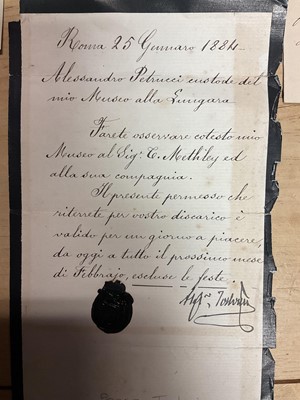 Roma 25 Gennaro 1884
Alessandro Petrucci custode del
mio Museo alla Lungara
Farete osservare cotesto mio
Museo al Sigr. C. Methley ed
alla sua compagnia.
Il presente permesso che
riterrete per vostro discarico è
valido per un giorno a piacere,
da oggi a tutto il prossimo mese
di Febbrajo, escluse le feste.